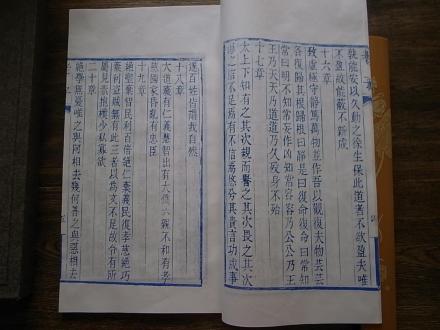 孰能安以久動之徐生保此道者不欲盈夫唯
不盈故能蔽不新成
十六章
致虛極守靜篤萬物並作吾以觀復夫物芸芸
各復歸其根歸根曰靜是曰復命復命曰常知
常曰明不知常妄作凶知常容容乃公公乃王
王乃天天乃道道乃久歿身不殆
十七章
太上下知有之其次親而譽之其次畏之其次
侮之信不足焉有不信焉悠兮其貴言功成事
遂百姓皆謂我自然
十八章
大道廢有仁義慧智出有大僞六親不和有孝
慈國家昏亂有忠臣
十九章
絶聖棄智民利百倍絶仁棄義民復孝慈絶巧
棄利盜賊無有此三者以為文不足故令有所
屬見素抱樸少私寡欲
二十章
絶學無憂唯之與阿相去幾何善之與惡相去